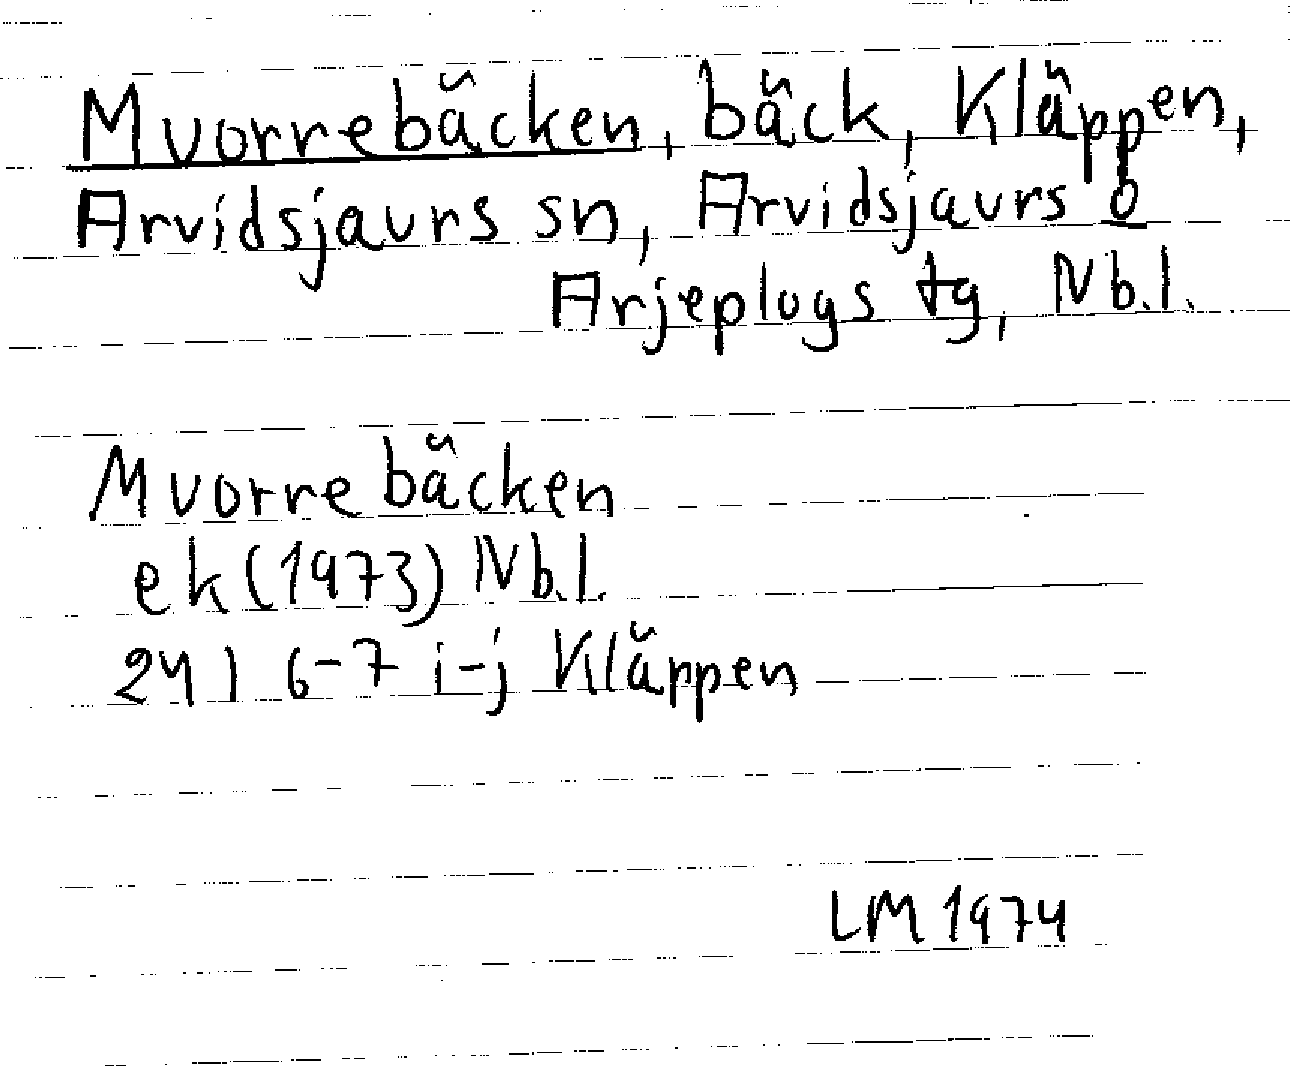 Mvorrebäcken, bäck, Kläppen,
Arvidsjaurs sn, Arvidsjaurs o
Arjeplogs tg, Nb.l.
Mvorrebäcken
ek(1973) Nb.l.
24 I 6-7 i-j Kläppen
LM 1974